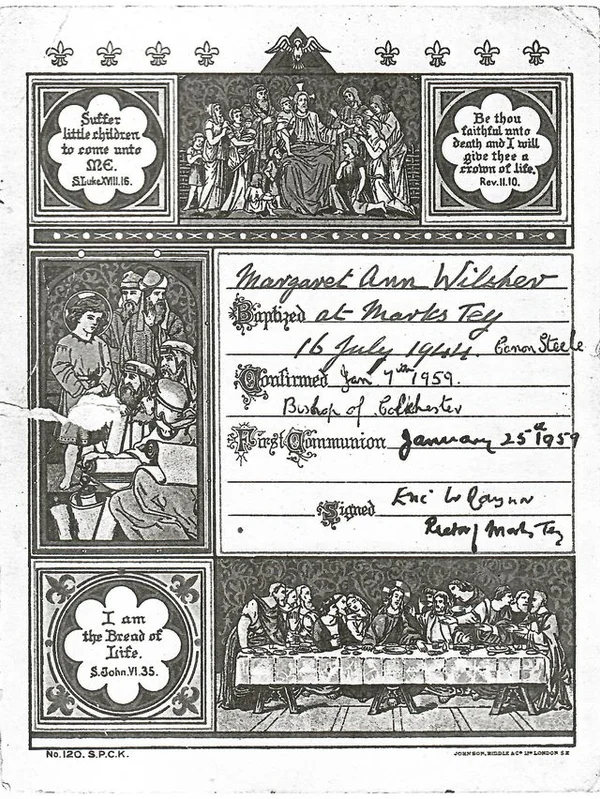 Suffer
little children
to come unto
ME.
S.Luke XVIII.16.
Be thou
faithful unto
death and I will
give thee a
crown of life.
Rev.II.10.
Margaret Ann Wilsher
Baptized at Marks Tey
16 July 1944. Canon Steele
Confirmed Jan. 7th 1959.
Bishop of Colchester
First Communion January 25th 1959
Signed Eric W Raynor
Rector / Marks Tey
I am
the Bread of
Life.
S.John.VI.35.
No.120. S.P.C.K.
JOHNSON, RIDDLE & Co LTD LONDON S.E